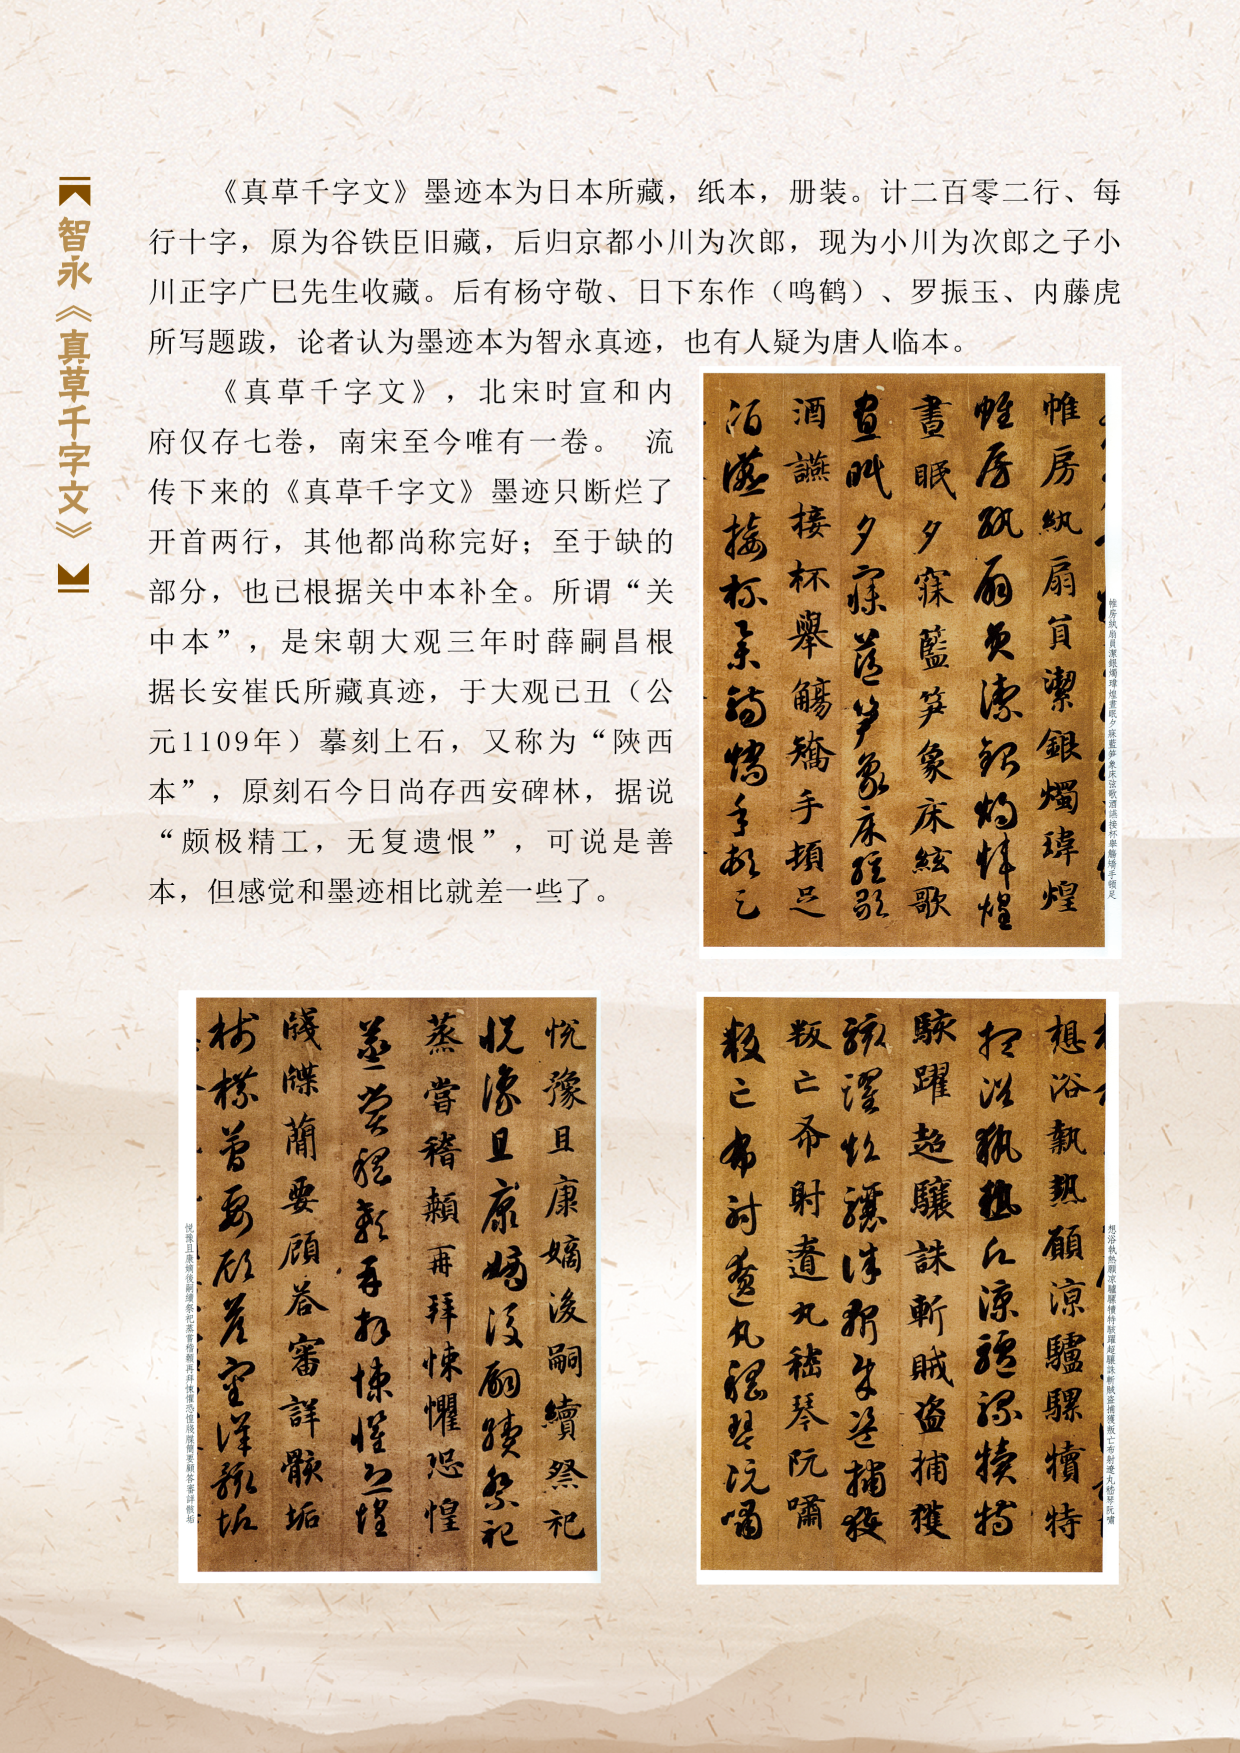 智永《真草千字文》
《真草千字文》墨迹本为日本所藏，纸本，册装。计二百零二行、每
行十字，原为谷铁臣旧藏，后归京都小川为次郎，现为小川为次郎之子小
川正字广巳先生收藏。后有杨守敬、日下东作（鸣鹤）、罗振玉、内藤虎
所写题跋，论者认为墨迹本为智永真迹，也有人疑为唐人临本。
《真草千字文》，北宋时宣和内
府仅存七卷，南宋至今唯有一卷。 流
传下来的《真草千字文》墨迹只断烂了
开首两行，其他都尚称完好；至于缺的
部分，也已根据关中本补全。所谓“关
中本”，是宋朝大观三年时薛嗣昌根
据长安崔氏所藏真迹，于大观己丑（公
元1109年）摹刻上石，又称为“陕西
本”，原刻石今日尚存西安碑林，据说
“颇极精工，无复遗恨”，可说是善
本，但感觉和墨迹相比就差一些了。
帷房紈扇員潔銀燭瑋煌
帷房紈扇員潔銀燭瑋煌
晝眠夕寐藍笋象床絃歌
晝眠夕寐藍笋象床絃歌
酒讌接杯舉觴矯手頓足
酒讌接杯舉觴矯手頓足
帷房紈扇員潔銀燭瑋煌晝眠夕寐藍笋象床弦歌酒讌接杯舉觴矯手頓足
悅豫且康嫡後嗣續祭祀
悅豫且康嫡後嗣續祭祀
蒸嘗稽顙再拜悚懼恐惶
蒸嘗稽顙再拜悚懼恐惶
牋牒簡要顧答審詳骸垢
牋牒簡要顧答審詳骸垢
悅豫且康嫡後嗣續祭祀蒸嘗稽顙再拜悚懼恐惶牋牒簡要顧答審詳骸垢
想浴執熱願涼驢騾犢特
想浴執熱願涼驢騾犢特
駭躍超驤誅斬賊盜捕獲
駭躍超驤誅斬賊盜捕獲
叛亡布射遼丸嵇琴阮嘯
叛亡布射遼丸嵇琴阮嘯
想浴執熱願涼驢騾犢特駭躍超驤誅斬賊盜捕獲叛亡布射遼丸嵇琴阮嘯